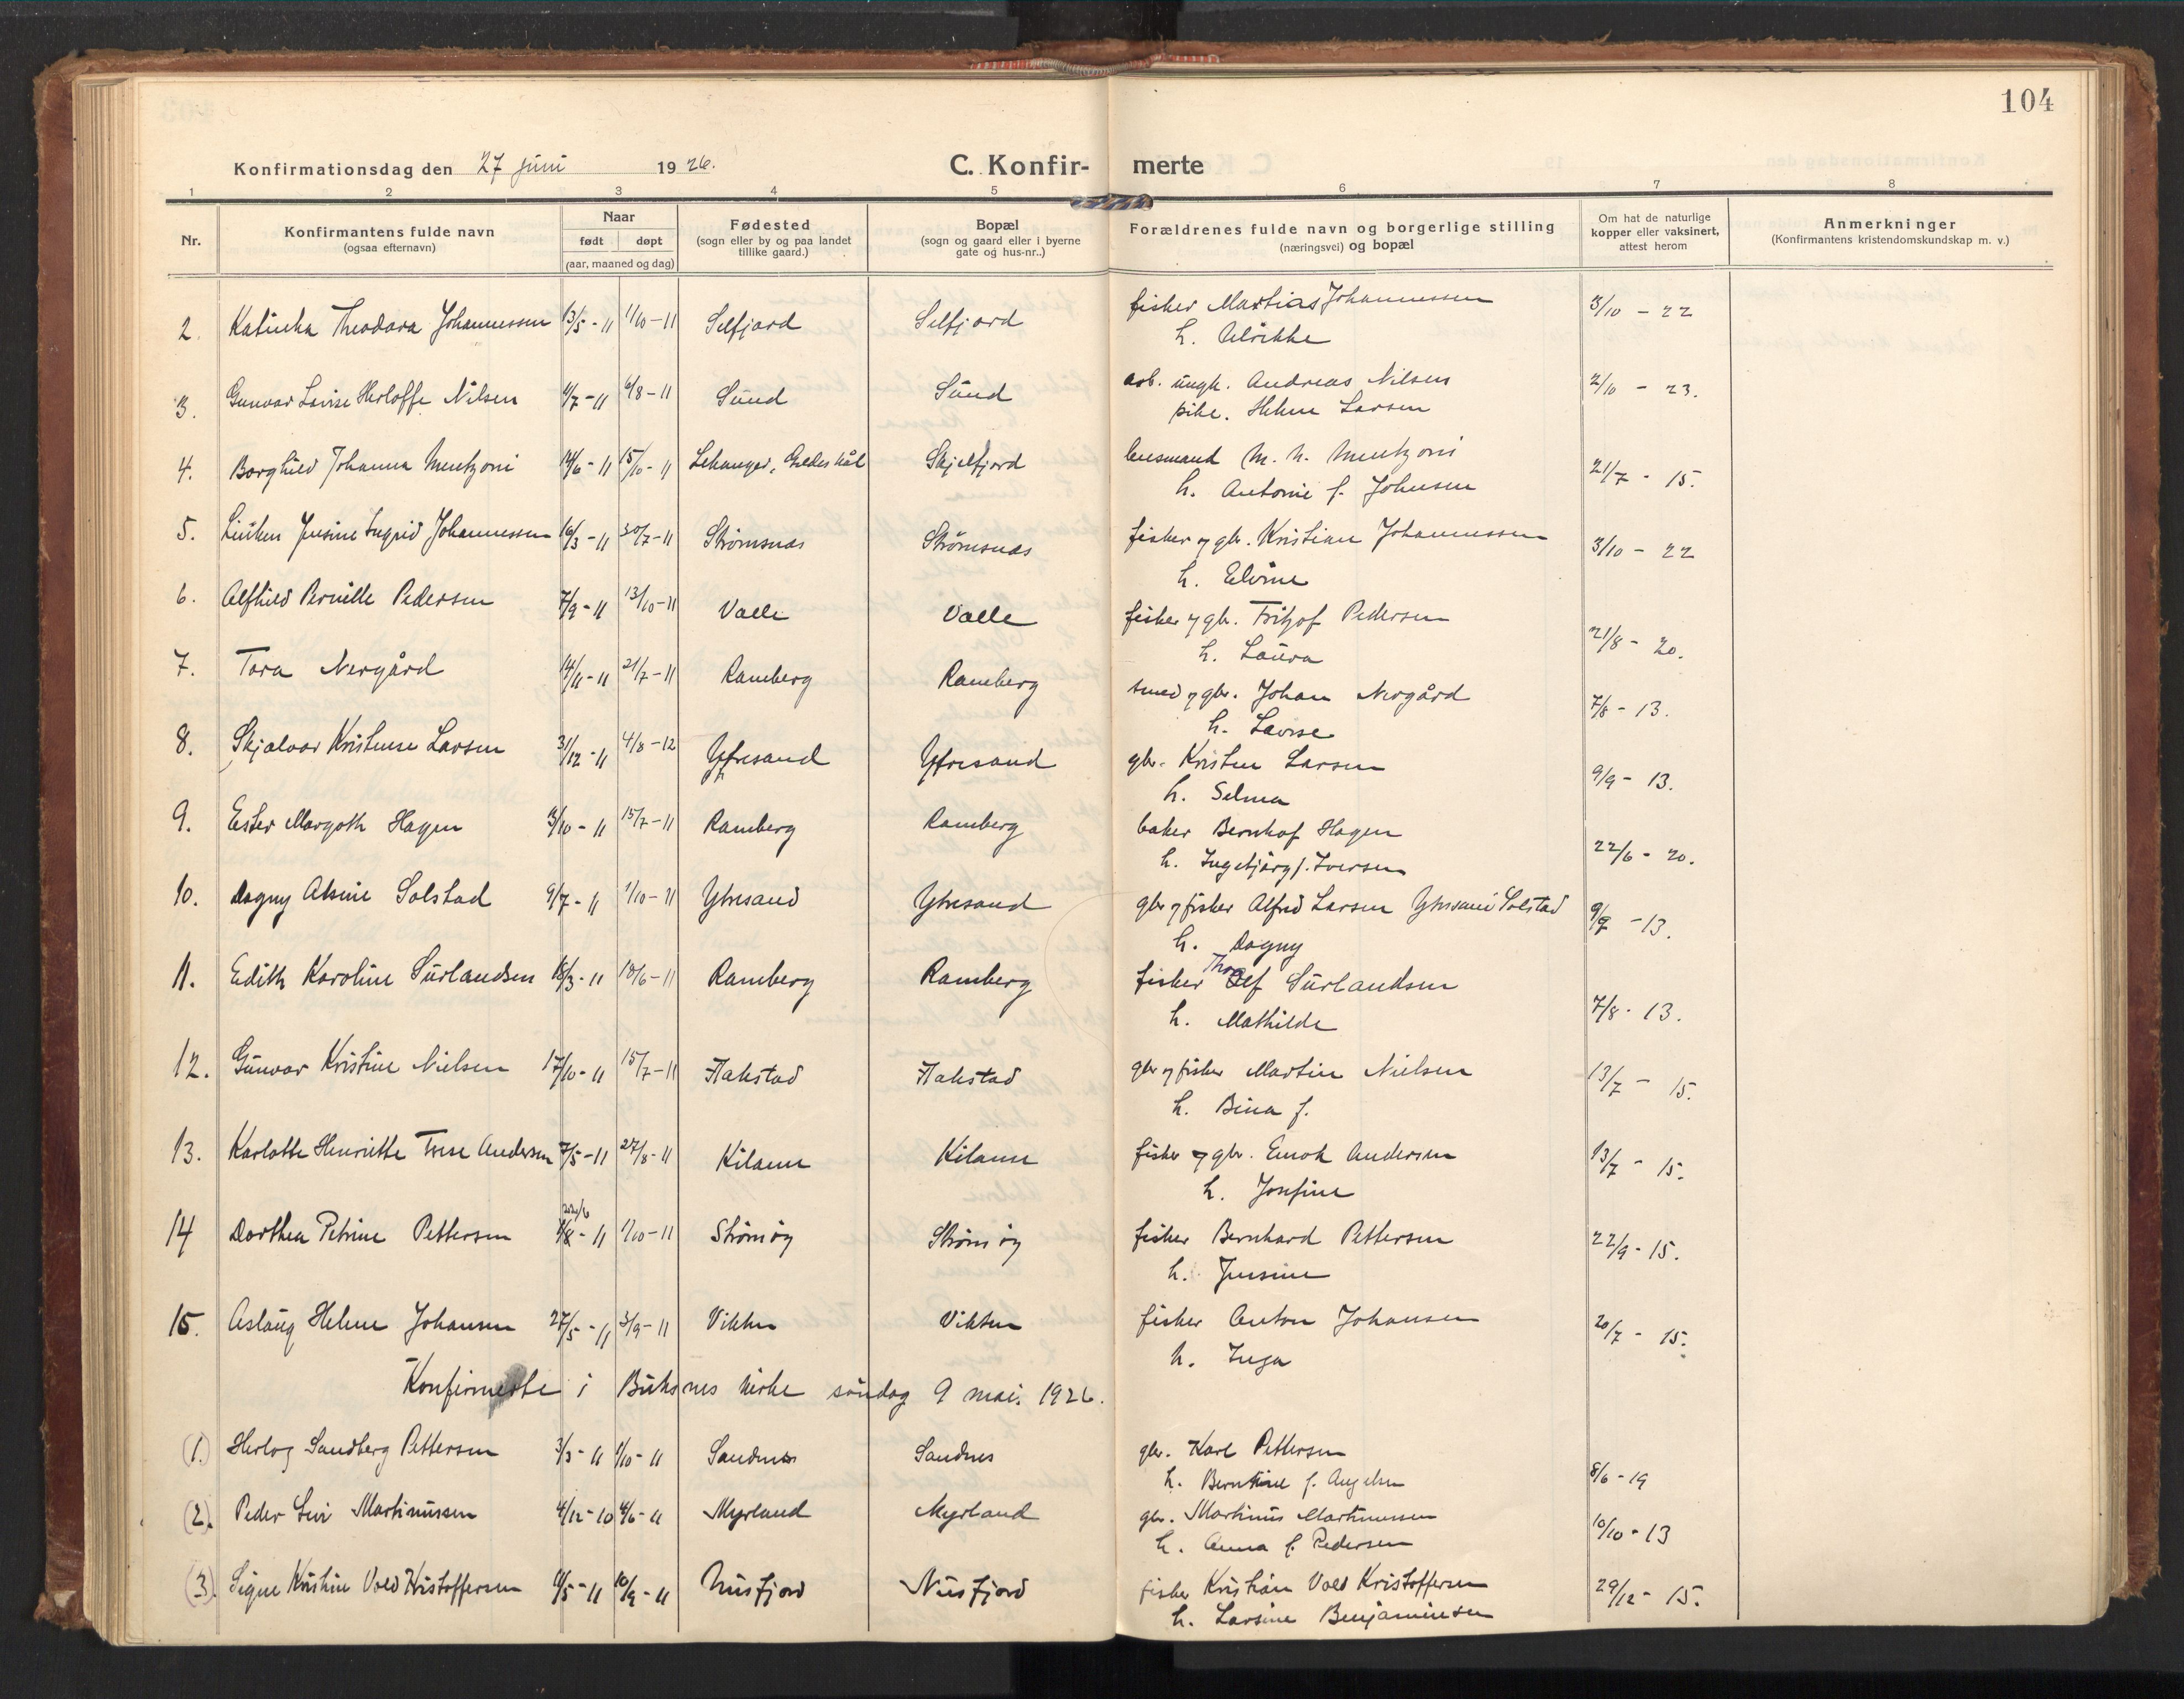 104
Konfirmationsdag den 27 juni 1926.
C. Konfir- merte
1 2 3 4 5 6 7 8
Nr.
Konfirmantens fulde navn
(ogsaa efternavn)
Naar
født døpt
(aar, maaned og dag)
Fødested
(sogn eller by og paa landet
tillike gaard.)
Bopæl
(sogn og gaard eller i byerne
gate og hus-nr..)
Forældrenes fulde navn og borgerlige stilling
(næringsvei) og bopæl
Om hat de naturlige
kopper eller vaksinert,
attest herom
Anmerkninger
(Konfirmantens kristendomskundskap m. v.)
2. Katinka Theodora Johannessen 13/5-11 1/10-11 Selfjord Selfjord fisker Martias Johannessen 3/10 - 22
h. Ulrikke
3. Gunvor Lovise Herloffe Nilsen 4/7-11 6/8-11 Sund Sund arb. ungk. Andreas Nilsen 2/10 - 23.
pike. Helene Larsen
4. Borghild Johanna Mentzoni 14/6-11 15/10-11 Lekanger, Gildeskål Skjelfjord lensmand M. N. Mentzoni 21/7 - 15.
h. Antonie f. Johnsen
5. Linken Jensine Ingrid Johannessen 16/3-11 30/7-11 Strømsnes Strømsnes fisker og gbr. Kristian Johannessen 3/10 - 22
h. Elvine
6. Alfhild Pernille Pedersen 7/9-11 13/10-11 Valle Valle fisker og gbr. Fritjof Pedersen 21/8 - 20.
h. Laura
7. Tora Nergård 14/4-11 21/7-11 Ramberg Ramberg smed og gbr. Johan Nergård 7/8 - 13.
h. Lovise
8. Skjalvor Kristense Larsen 31/12-11 4/8-12 Ytresand Ytresand gbr. Kristen Larsen 9/9 - 13.
h. Selma
9. Ester Margoth Hagen 3/10-11 15/7-11 Ramberg Ramberg baker Bernhof Hagen 22/6 - 20.
h. Ingebjørg f. Iversen
10. Dagny Alsine Solstad 9/7-11 1/10-11 Ytresand Ytresand gbr og fisker Alfred Larsen Ytresand Solstad 9/9 - 13.
h. Dagny
11. Edith Karoline Surlandsen 18/3-11 18/6-11 Ramberg Ramberg fisker Tholf Surlandsen 7/8 - 13.
h. Mathilde
12. Gunvor Kristine Nielsen 17/10-11 15/7-11 Flakstad Flakstad gbr og fisker Martin Nielsen 13/7 - 15.
h. Bina f.
13. Karlotte Henriette Trese Andersen 7/5-11 27/8-11 Kilann Kilann fisker og gbr. Enok Andersen 13/7 - 15.
h. Josefine
14 Dorthea Petrine Pettersen 1/8-11 1/10-11 Strømøy Strømøy fisker Bernhard Pettersen 22/9 - 15.
h. Jensine
15. Aslaug Helene Johansen 27/5-11 3/9-11 Vikten Vikten fisker Anton Johansen 20/7 - 15.
h. Inga
Konfirmerte i Buksnes kirke søndag 9 mai. 1926.
(1.) Herlog Sandberg Pettersen 3/3-11 1/10-11 Sandnes Sandnes gbr. Karl Pettersen 8/6 - 19
h. Berntine f. Angelsen
(2). Peder Levi Martinussen 4/12-10 4/6-11 Myrland Myrland gbr. Martinus Martinussen 10/10 - 13
h. Anna f. Pedersen
(3). Signe Kristine Vold Kristoffersen 4/5-11 10/9-11 Nusfjord Nusfjord fisker Kristian Vold Kristoffersen 29/12 - 15.
h. Larsine Benjaminsen